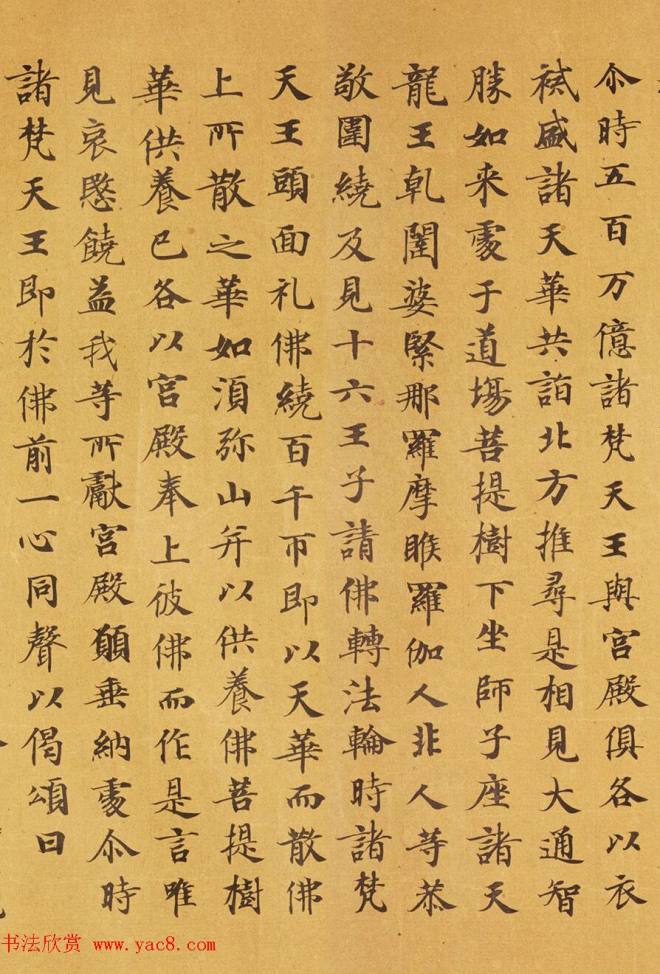 尒時五百万億諸梵天王與宮殿俱各以衣
裓盛諸天華共詣北方推尋是相見大通智
勝如来處于道場菩提樹下坐師子座諸天
龍王乹闥婆緊那羅摩睺羅伽人非人等恭
敬圍繞及見十六王子請佛轉法輪時諸梵
天王頭面礼佛繞百千帀即以天華而散佛
上所散之華如湏弥山并以供養佛菩提樹
華供養已各以宮殿奉上彼佛而作是言唯
見哀愍饒益我等所獻宮殿願垂納處尒時
諸梵天王即於佛前一心同聲以偈頌曰
书法欣赏 www.yac8.com